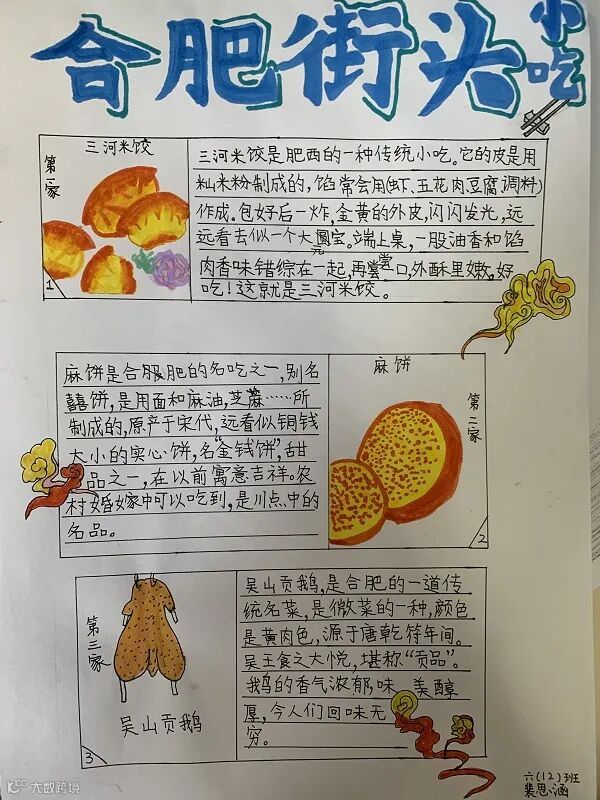 合肥街头
小吃
第一家
三河米饺
三河米饺是肥西的一种传统小吃。它的皮是用
籼米粉制成的,馅常会用(虾、五花肉豆腐调料)
作成。包好后一炸,金黄的外皮,闪闪发光,远
远看去似一个大圆宝。端上桌,一股油香和馅
元
肉香味错综在一起,再尝口,外酥里嫩。好
尝
吃!这就是三河米饺。
1
麻饼是合肥的名吃之一,别名
囍饼,是用面和麻油,芝蔴……所
制成的,原产于宋代,远看似铜钱
大小的实心饼,名“金钱饼”,甜
品之一,在以前寓意吉祥。农
村婚嫁中可以吃到,是川点中的
名品。
麻饼
第二家
2
第三家
吴山贡鹅
3
吴山贡鹅,是合肥的一道传
统名菜,是徽菜的一种,颜色
是黄肉色,源于唐乾符年间。
吴王食之大悦,堪称“贡品”。
鹅的香气浓郁,味 美醇
厚,令人们回味无
穷。
六(12)班
裴思涵
大数跨境